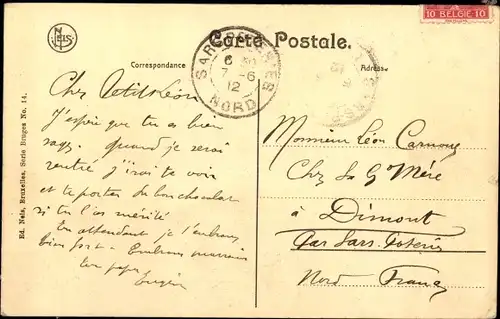 NELS
Carte Postale.
10 BELGIE 10
Correspondance
Adresse
SARS-POTERIES
6 30
7 - 6
12
NORD
Ed. Nels, Bruxelles, Serie Bruges No. 14.
Cher Petit Léon
J'espère que tu es bien
sage. Quand je serai
rentré j'irai te voir
et te porter du bon chocolat
si tu l'as mérité
En attendant je t'embrasse
bien fort. Embrasse marraine
ton papa
Eugène
Monsieur Léon
Chez Sa Gd Mère
à Dimont
Par Sars Poteries
Nord France